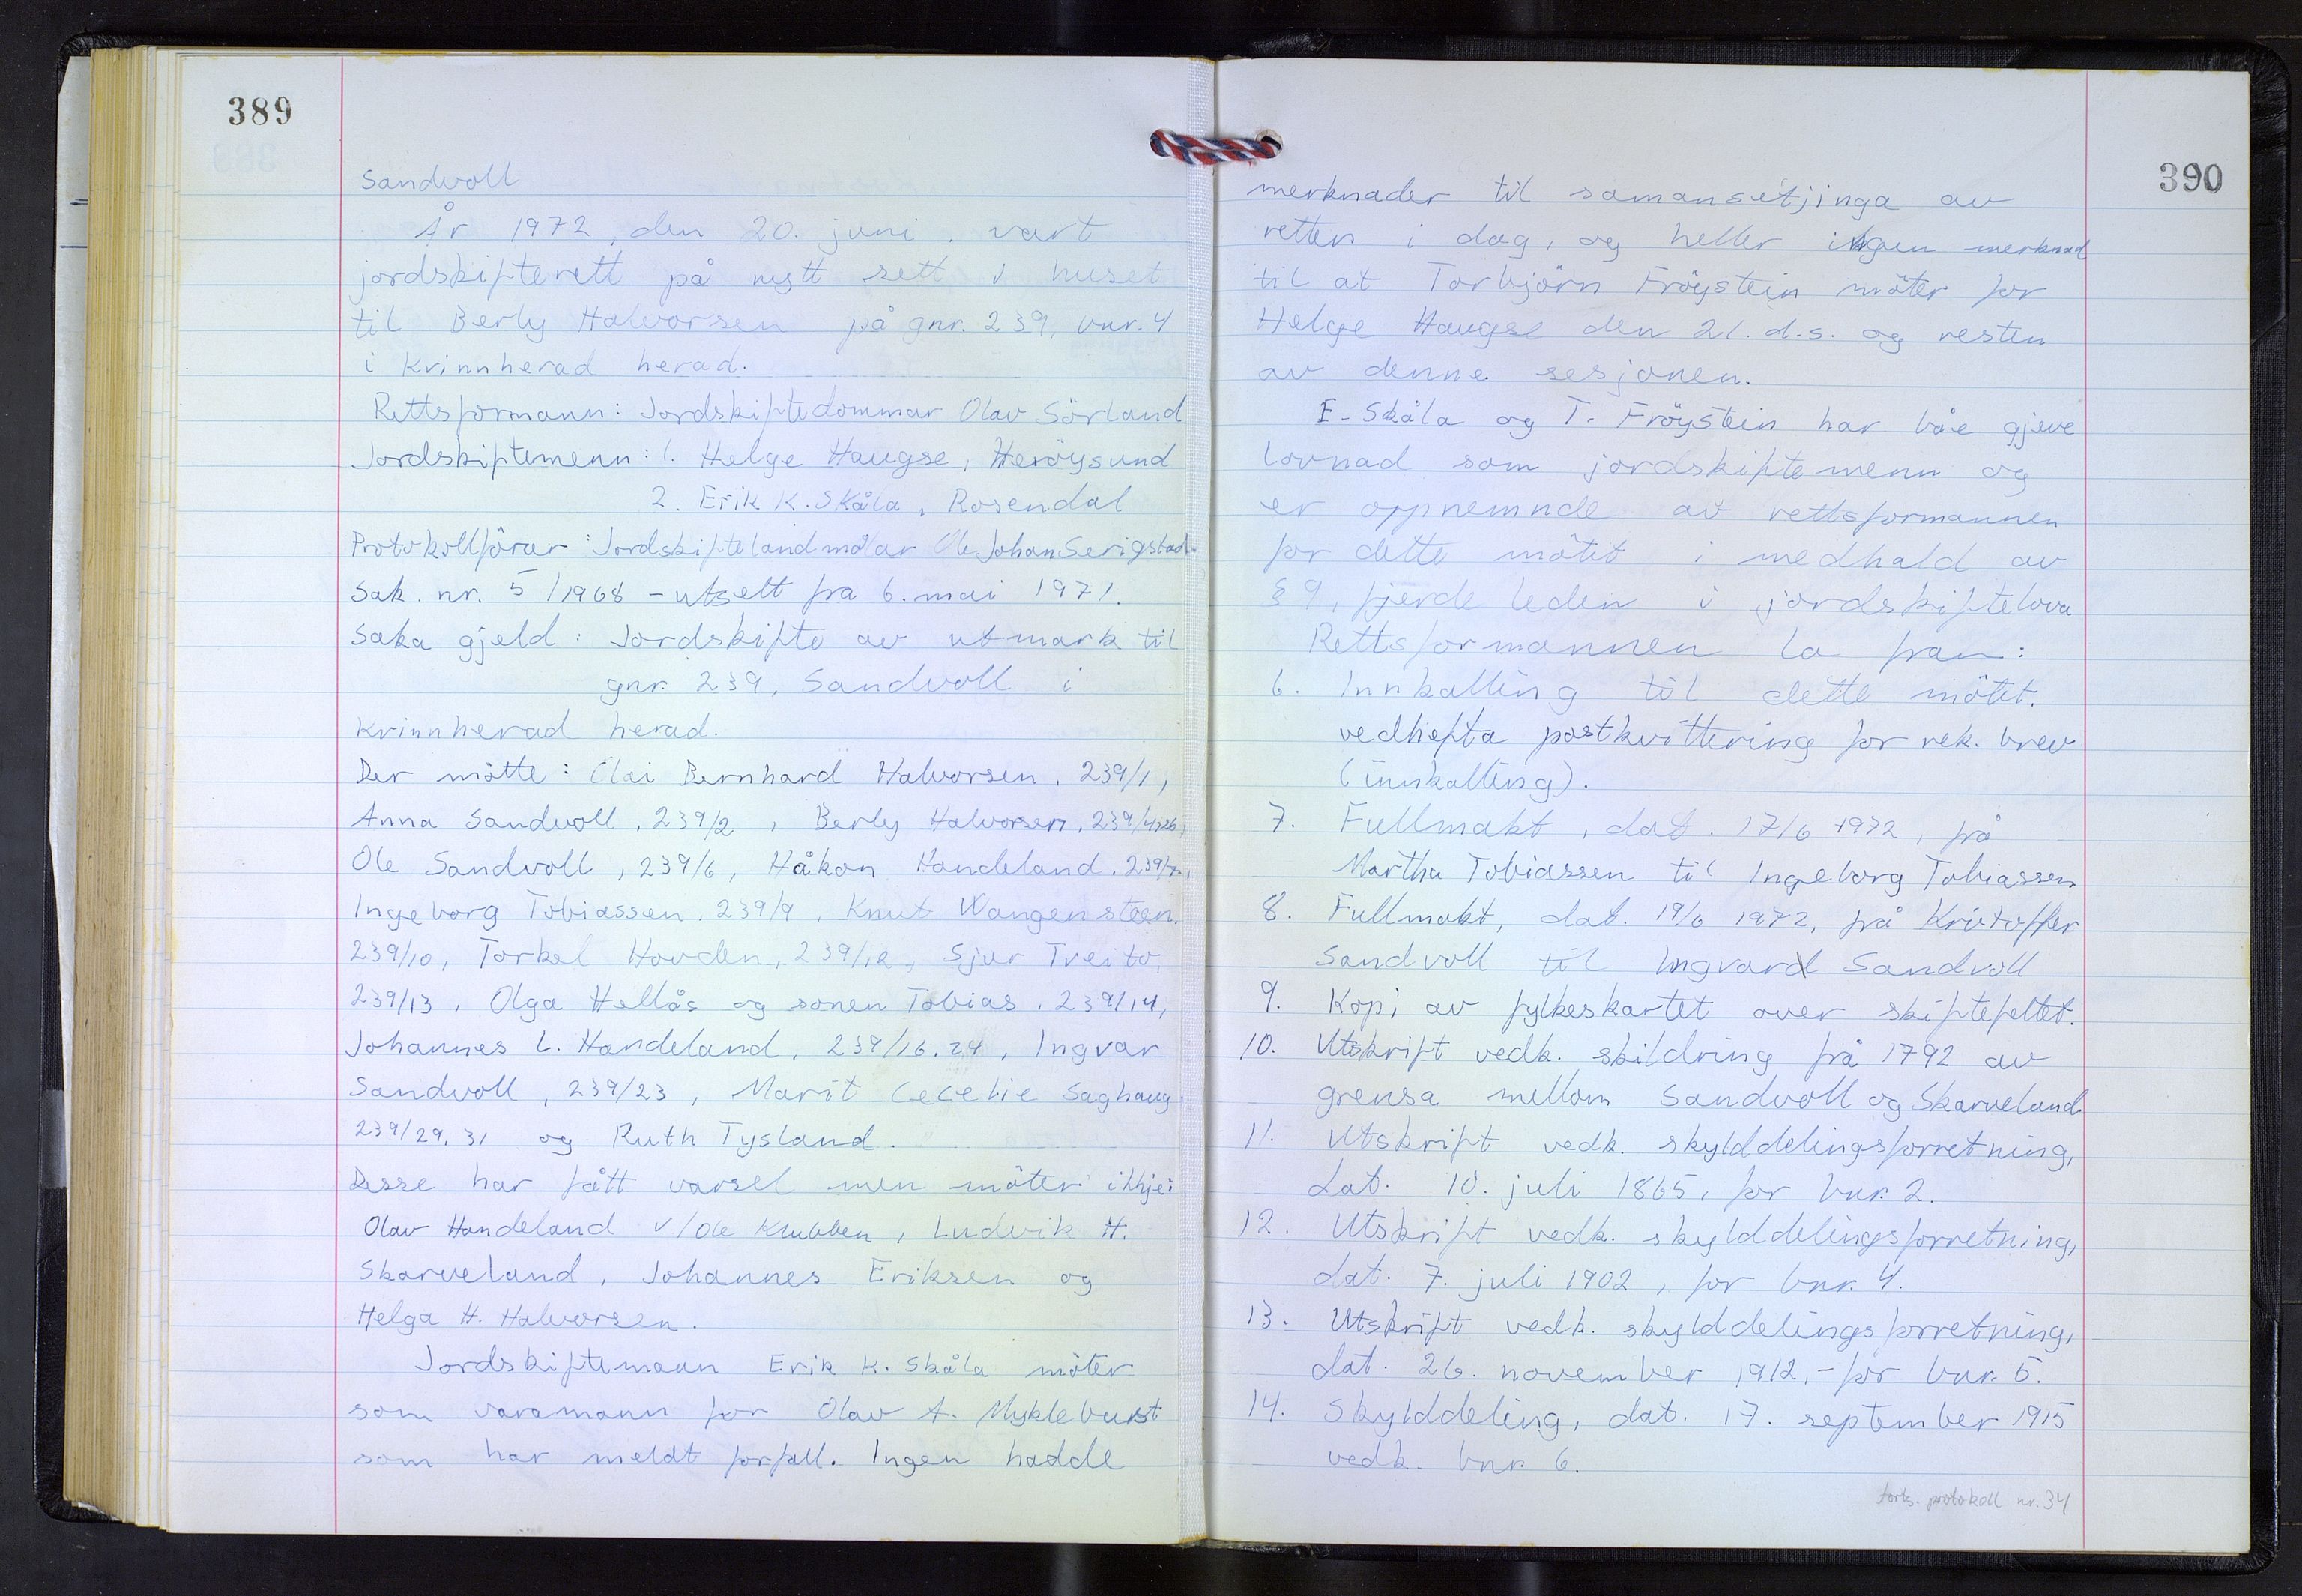 389
Sandvoll
År 1972, den 20. juni. vart
jordskifterett på nytt sett i huset
til Berly Halvorsen på gnr. 239, bnr. 4
i Kvinnherad herad.
Rettsformann: Jordskiftedommar Olav Sörland
Jordskiftemenn: 1. Helge Haugse, Heröysund
2. Erik K. Skåla, Rosendal
Protokollförar: Jordskiftelandmålar Ole Johan Serigstad.
Sak. nr. 5/1968 - utsett fra 6. mai 1971.
Saka gjeld: Jordskifte av utmark til
gnr. 239, Sandvoll i
Kvinnherad herad.
Der mötte: Olai Bernhard Halvorsen. 239/1,
Anna Sandvoll, 239/2, Berly Halvorsen, 239/4,26,
Ole Sandvoll, 239/6, Håkon Handeland. 239/7,
Ingeborg Tobiassen. 239/9, Knut Wangensteen.
239/10, Torkel Hovden, 239/12, Sjur Tveito,
239/13, Olga Hellås og sonen Tobias. 239/14,
Johannes L. Handeland, 239/16.24, Ingvar
Sandvoll, 239/23, Marit Cecelie Saghaug,
239/29, 31 og Ruth Tysland.
Desse har fått varsel men möter ikkje:
Olav Handeland v/Ole Klubben, Ludvik H.
Skarveland, Johannes Eriksen og
Helga H. Halvorsen.
Jordskiftemann Erik K. Skåla möter
som varamann for Olav A. Myklebust
som har meldt forfall. Ingen hadde
390
merknader til samansetjinga av
retten i dag, og heller ingen merknad
til at Torbjörn Fröystein möter for
Helge Haugse den 21. d.s. og resten
av denne sesjonen.
E. Skåla og T. Fröystein har båe gjeve
lovnad som jordskiftemenn og
er oppnemnde av rettsformannen
for dette mötet i medhald av
§ 9, fjerde leden i jordskiftelova
Rettsformannen la fram:
6. Innkalling til dette mötet.
vedhefta postkvittering for rek. brev
(innkalling).
7. Fullmakt, dat. 17/6 1972, frå
Martha Tobiassen til Ingeborg Tobiassen
8. Fullmakt, dat. 19/6 1972, frå Kristoffer
Sandvoll til Ingvard Sandvoll
9. Kopi av fylkeskartet over skiftefeltet.
10. Utskrift vedk. skildring frå 1792 av
grensa mellom Sandvoll og Skarveland
11. Utskrift vedk. skylddelingsforretning,
dat. 10. juli 1865, for bnr. 2.
12. Utskrift vedk. skylddelingsforretning,
dat. 7. juli 1902, for bnr. 4.
13. Utskrift vedk. skylddelingsforretning,
dat. 26. november 1912, - for bnr. 5.
14. Skylddeling, dat. 17. september 1915
vedk. bnr. 6.
forts. protokoll nr. 34